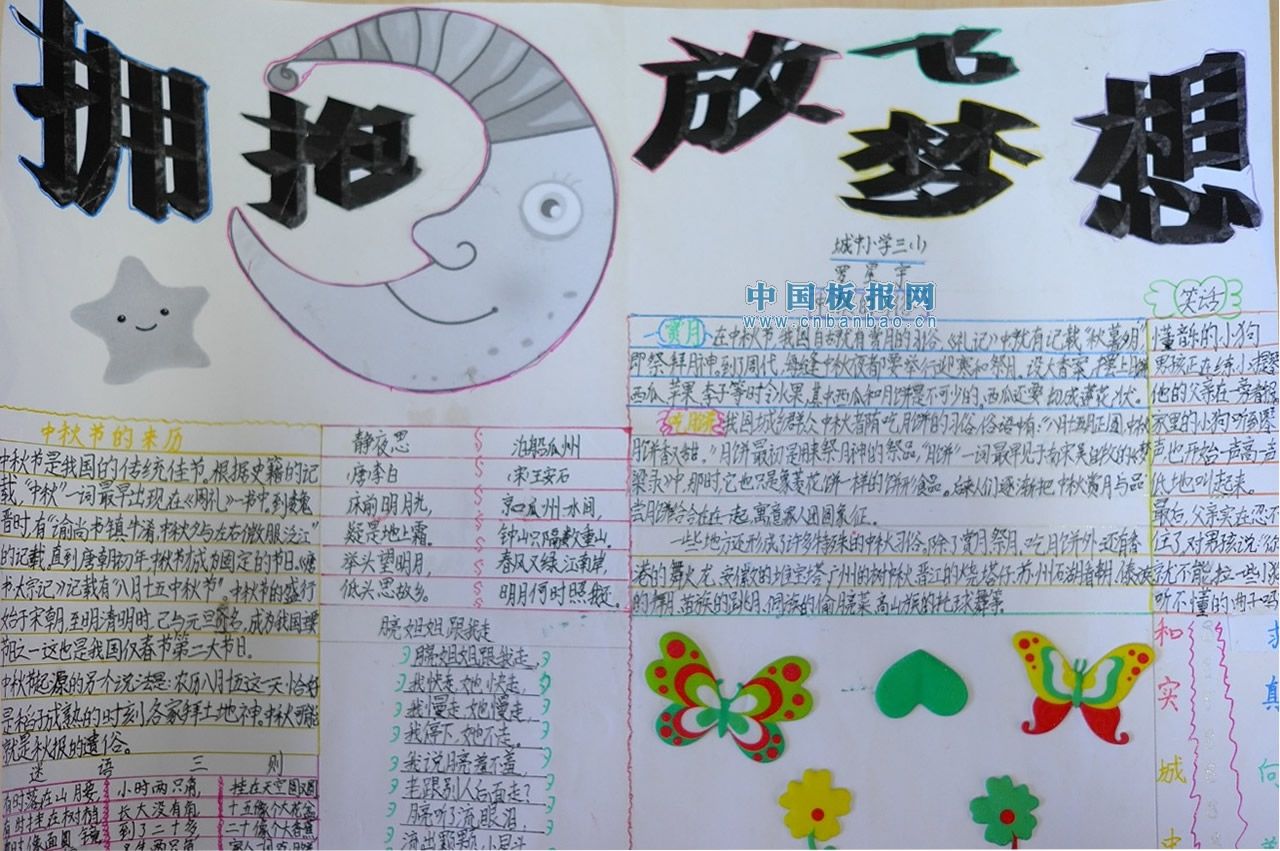 拥抱
放飞
梦想
城中小学三(1)
中国板报网
www.cnbanbao.cn
中秋节的来历
中秋节是我国的传统佳节。根据史籍的记
载,“中秋”一词最早出现在《周礼》一书中。到
晋时,有“谕尚书镇牛渚,中秋夕与左右微服泛江”
的记载。直到唐朝初年,中秋节才成为固定的节日。
书太宗记》记载有“八月十五中秋节”。中秋节的盛行
始于宋朝,至明清明时,已与元旦齐名,成为我国
节之一。这也是我国仅春节第二大节日。
中秋节起源的另个说法是:农历八月十五这一天恰好
是稻子成熟的时刻,各家拜土地神。中秋可能
就是秋报的遗俗。
谜语三则
有时落在山腰,
有时挂在树梢,
小时两只角,
长大没有角,
到了二十多,
挂在天空圆又圆
静夜思
唐·李白
床前明月光,
疑是地上霜。
举头望明月,
低头思故乡。
泊船瓜州
宋·王安石
京口瓜州一水间,
钟山只隔数重山。
春风又绿江南岸,
明月何时照我还。
月亮姐姐跟我走
月亮姐姐跟我走,
我快走,她快走,
我慢走,她慢走,
我停下,她不走。
我说月亮羞不羞,
老跟别人后面走?
月亮听了流眼泪,
流出颗颗小星斗
赏月 在中秋节,我国自古就有赏月的习俗,《礼记》中就有记载“秋暮夕月”,
即祭拜月神。到了周代,每逢中秋夜都要举行迎寒和祭月。设大香案,摆上月饼
西瓜、苹果、李子等时令水果,其中西瓜和月饼是不可少的。西瓜还要切成莲花状。
吃月饼 我国城乡群众中秋都有吃月饼的习俗,俗话中有:“八月十五月正圆,中秋
月饼香又甜。”月饼最初是用来祭月神的祭品,“月饼”一词最早见于南宋吴自牧的《梦
梁录》中,那时,它也只是象菱花饼一样的饼形食品。后来人们逐渐把中秋赏月与品
尝月饼结合在在一起,寓意家人团圆象征。
一些地方还形成了许多特殊的中秋习俗。除了赏月、祭月、吃月饼外,还有香
港的舞火龙、安徽的堆宝塔、广州的树中秋、晋江的烧塔仔、苏州石湖看串月、傣族
的拜月、苗族的跳月、侗族的偷月亮菜、高山族的托球舞等。
笑话
懂音乐的小狗
男孩正在练小提琴
他的父亲在一旁看报
家里的小狗听到琴
声也开始一声高一声
低地叫起来。
最后,父亲实在忍不
住了,对男孩说:“你
就不能拉一些小狗
听不懂的曲子吗
和
实
城
中
求
真
向
善